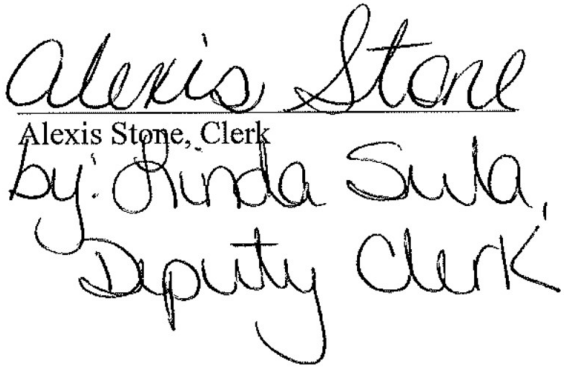 Alexis Stone
Alexis Stone, Clerk
by: Linda Sula,
Deputy Clerk